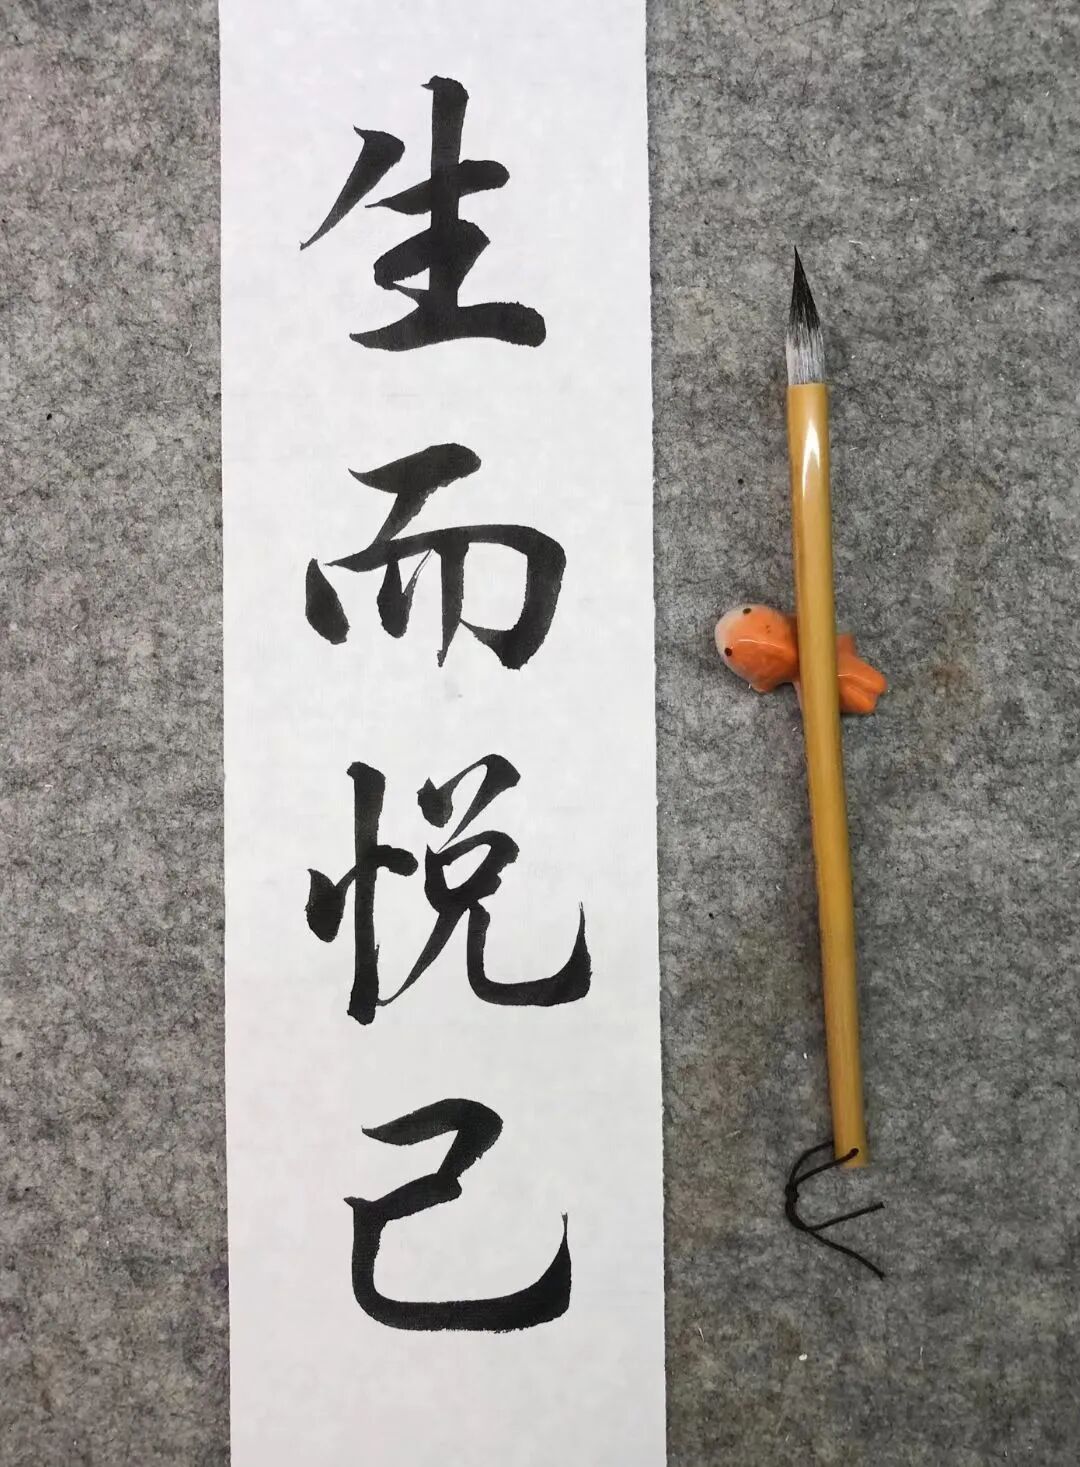 生而悦己